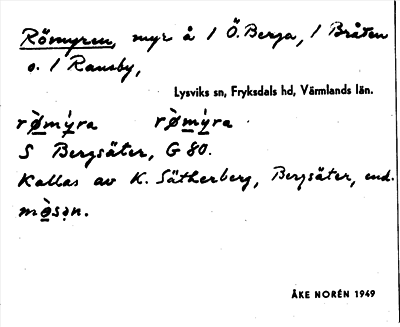 Römyren, myr å 1 Ö. Berga, 1 Bråten
o. 1 Ransby,
Lysviks sn, Fryksdals hd, Värmlands län.
rø̀mýra rø̀mýra
S Bergsäter, G 80.
Kallas av K. Sätherberg, Bergsäter, end.
mò̱sən.
ÅKE NORÉN 1949